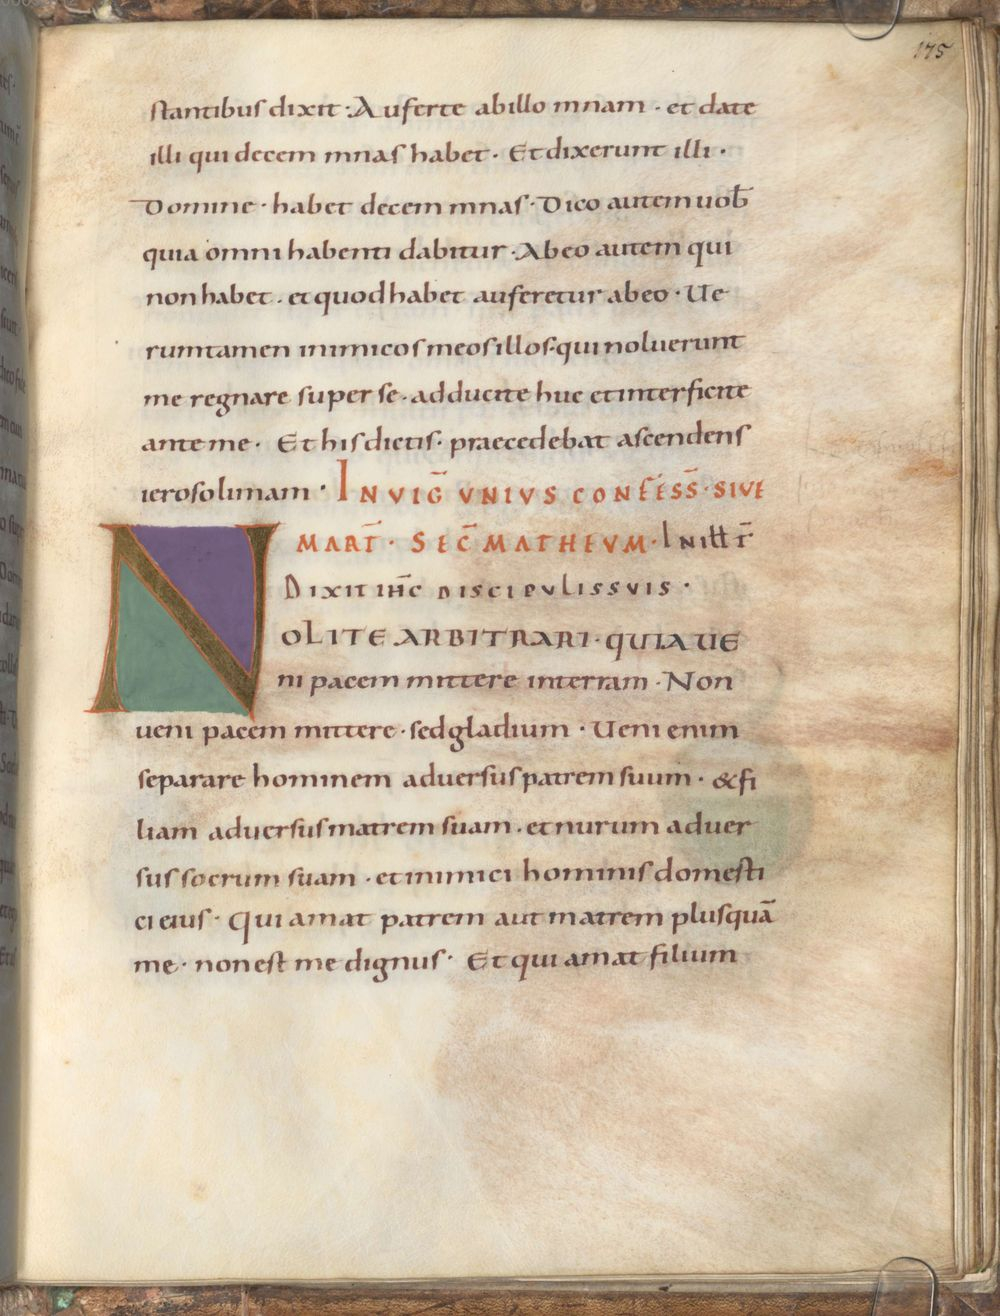 175
stantibus dixit · Auferte abillo mnam · et date
illi qui decem mnas habet · Et dixerunt illi ·
Domine · habet decem mnas · Dico autem uob̅
quia omni habenti dabitur · Abeo autem qui
non habet · et quod habet auferetur abeo · Ue
rumtamen inimicos meos illos · qui noluerunt
me regnare super se · adducite huc et interficite
ante me · Et his dictis · praecedebat ascendens
ierosolimam · IN VIG̅ VNIVS CONFESS̅ · SIVE
MART̅ · SEC̅ MATHEVM · In ill̅ t̅
Dixit ih̅c discipulis suis ·
NOLITE ARBITRARI · QUIA UE
ni pacem mittere interram · Non
ueni pacem mittere · sed gladium · Ueni enim
separare hominem aduersus patrem suum · & fi
liam aduersus matrem suam · et nurum aduer
sus socrum suam · et inimici hominis domesti
ci eius · Qui amat patrem aut matrem plusqua̅
me · non est me dignus · Et qui amat filium